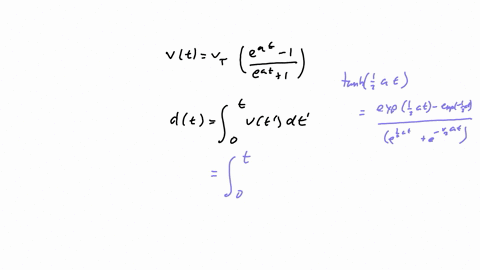 v(t) = v_T ( (e^{at} - 1) / (e^{at} + 1) )
d(t) = ∫_0^t v(t') dt'
= ∫_0^t
tanh(½ a t)
= (exp(½ at) - exp(-½ at)) / (e^{½ at} + e^{-½ at})